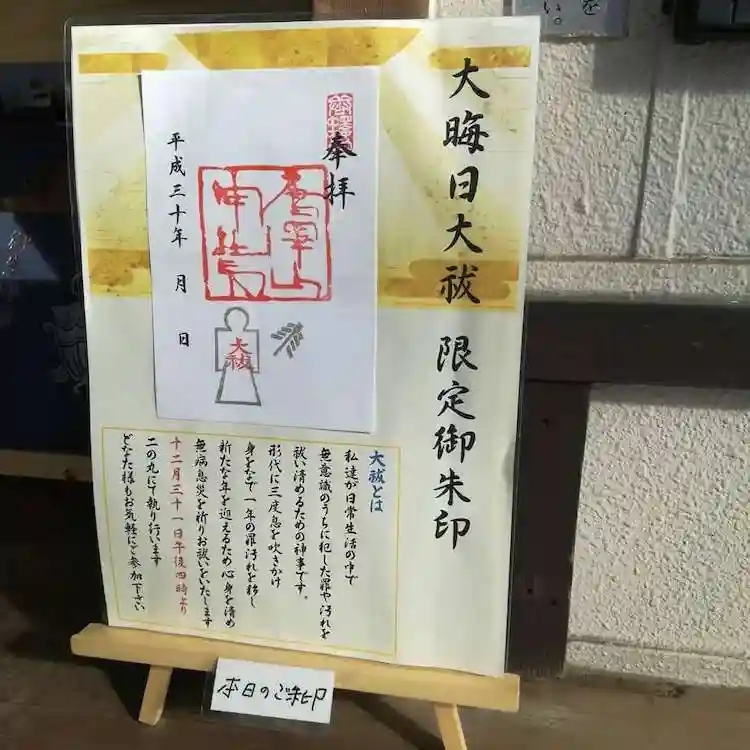 大晦日大祓 限定御朱印
奉拝
唐澤山
神社
平成三十年 月 日
大祓
大祓とは
私達が日常生活の中で
無意識のうちに犯した罪や汚れを
祓い清めるための神事です。
形代に三度息を吹きかけ
身をなで一年の罪汚れを移し
新たな年を迎えるため心身を清め
無病息災を祈りお祓いをいたします
十二月三十一日午後四時より
二の丸にて執り行います
どなた様もお気軽にご参加下さい
本日のご朱印